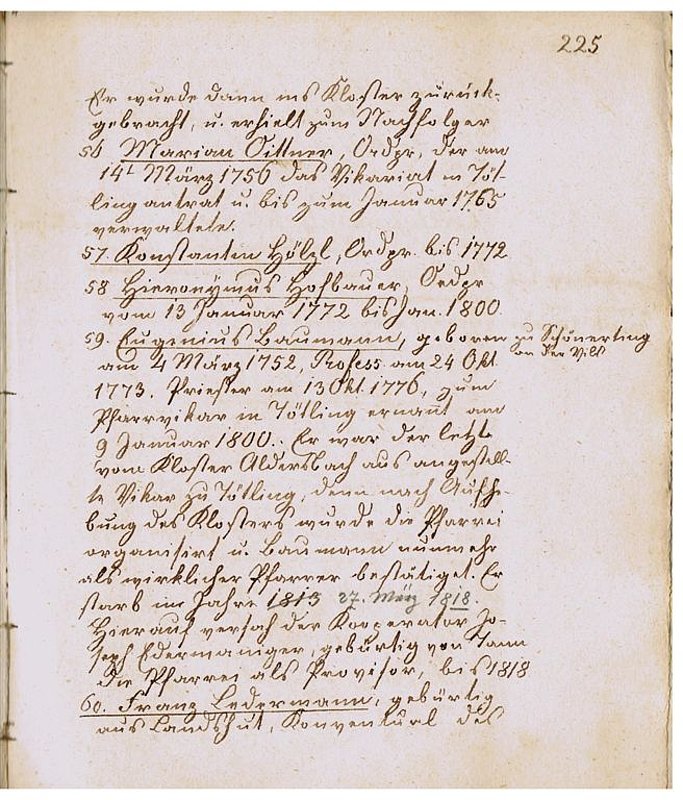 225
Er wurde dann ins Kloster zurück-
gebracht, u. erhielt zum Nachfolger
56 Marian Cittner, Ordpr, der am
14t März 1756 das Vikariat in Töt-
ling antrat u. bis zum Januar 1765
verwaltete.
57. Konstantin Hölzl, Ordpr. bis 1772
58 Hieronÿmus Hofbauer, Ordpr
vom 13 Januar 1772 bis Jan. 1800.
59. Eugenius Baumann, geboren zu Schönerting
an der Vils
am 4 März 1752, Profess am 24 Okt
1773. Priester am 13 Okt. 1776, zum
Pfarrvikar in Tötling ernant am
9 Januar 1800. Er war der letzte
vom Kloster Aldersbach aus angestell-
te Vikar zu Tötling, denn nach Aufhe-
bung des Klosters wurde die Pfarrei
organisirt u. Baumann nunmehr
als wirklicher Pfarrer bestätiget. Er
starb im Jahre 1813 27. März 1818.
Hierauf versah der Kooperator Jo-
seph Edermaniger, gebürtig von Tann
die Pfarrei als Provisor, bis 1818
60. Franz Ledermann, gebürtig
aus Landshut, Konventual des